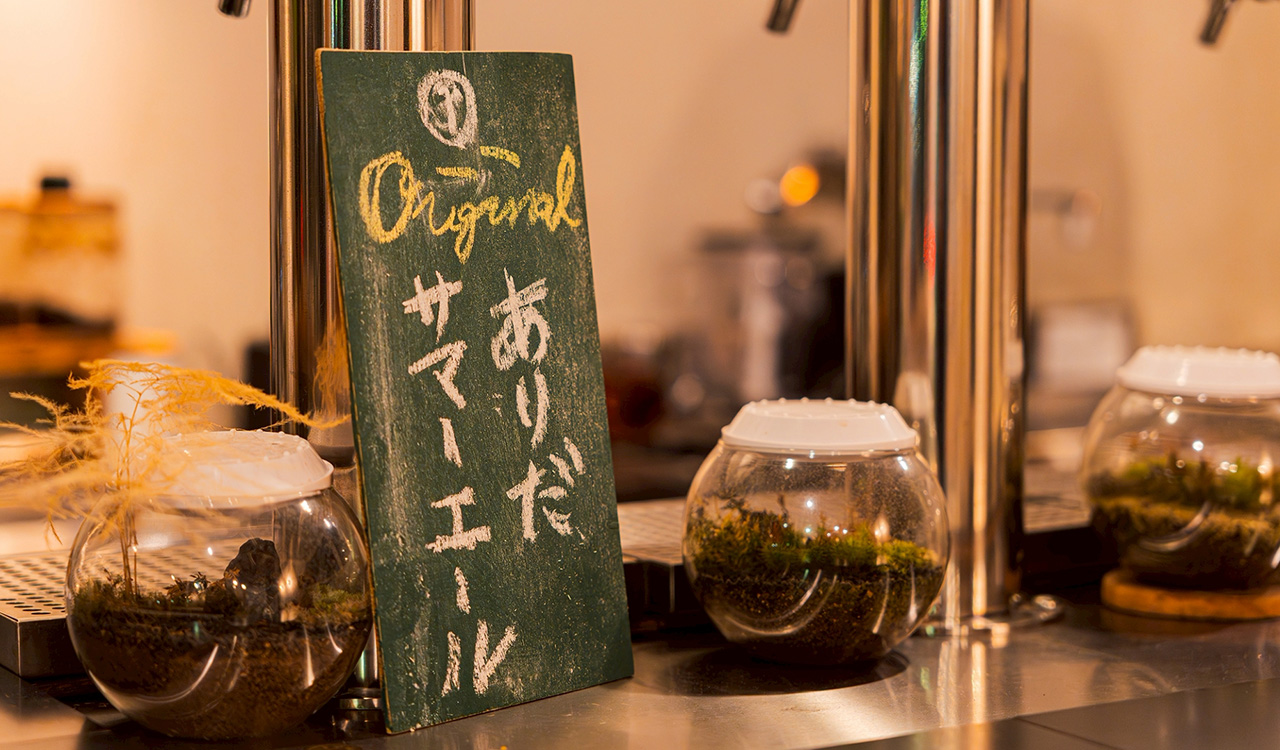 Original
ありだ
サマーエール